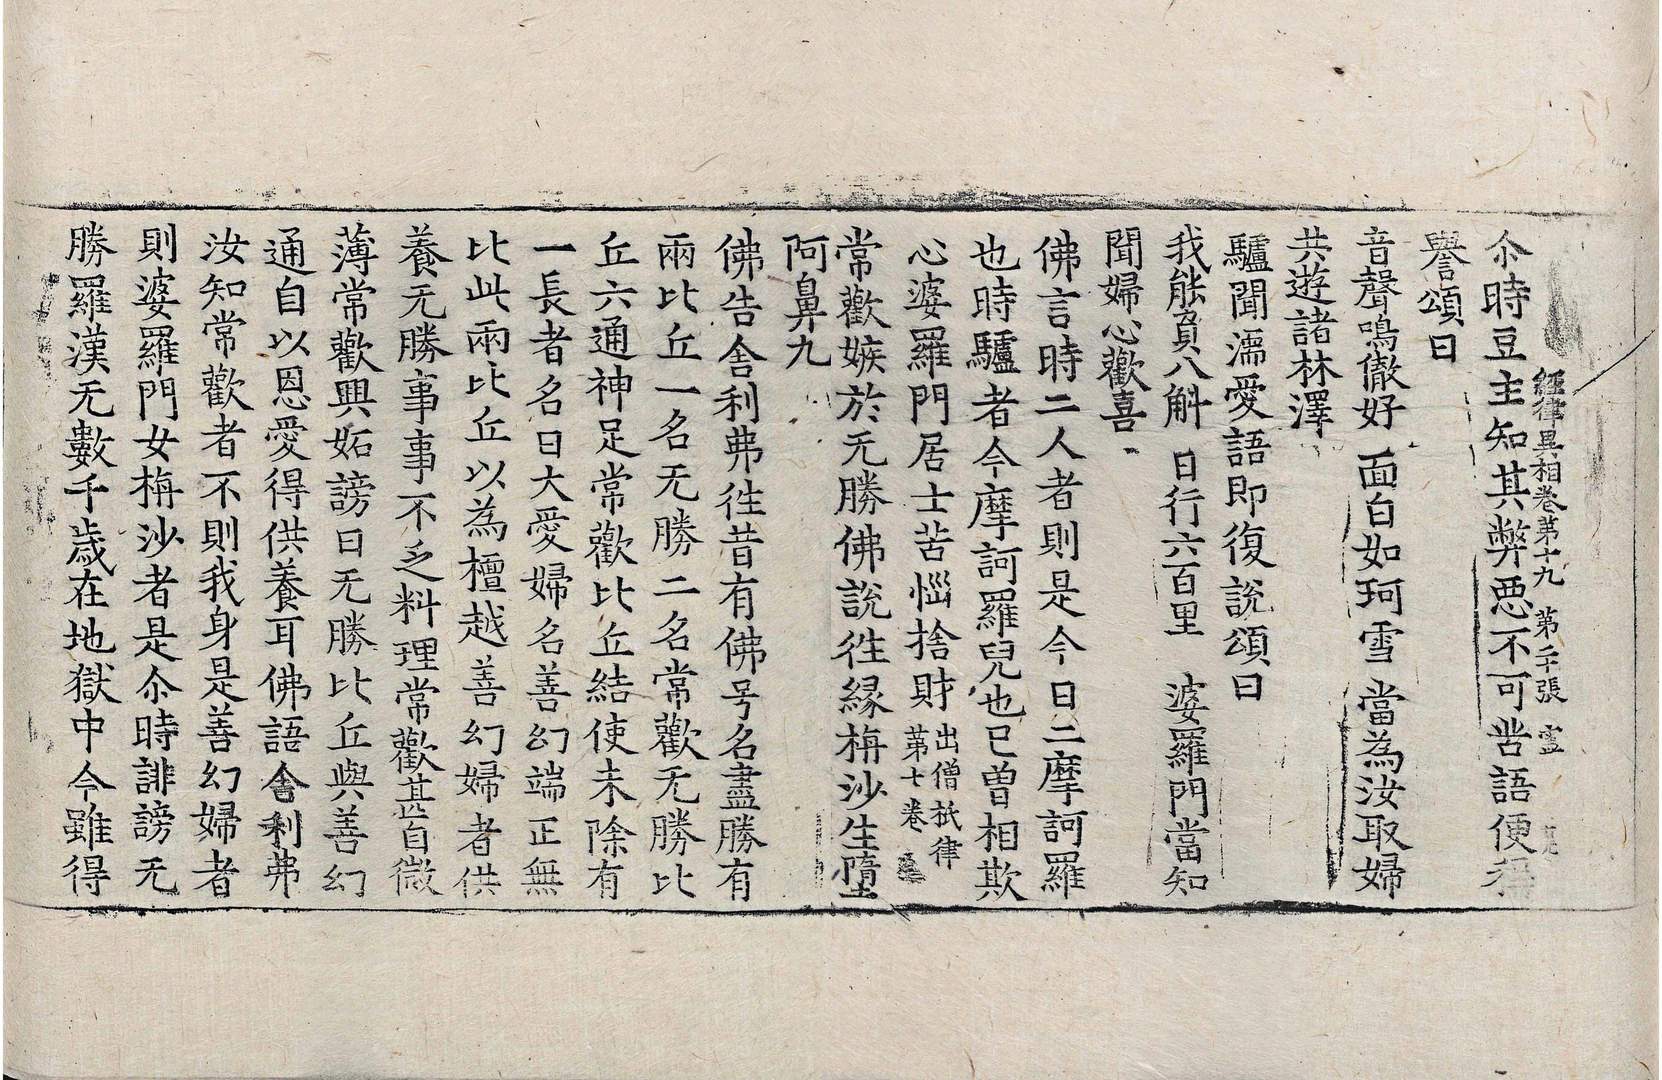 尒時豆主知其弊惡不可呰語便稱
經律異相卷第十九　第二十張　靈
譽頌曰
音聲鳴徹好　面白如珂雪　當為汝取婦
共遊諸林澤
驢聞濡愛語即復說頌曰
我能負八斛　日行六百里　婆羅門當知
聞婦心歡喜
佛言時二人者則是今日二摩訶羅
也時驢者今摩訶羅兒也已曾相欺
心婆羅門居士苦惱捨財出僧祇律第七卷
常歡嫉於无勝佛說徃縁栴沙生墮
阿鼻九
佛告舍利弗徃昔有佛号名盡勝有
兩比丘一名无勝二名常歡无勝比
丘六通神足常歡比丘結使未除有
一長者名曰大愛婦名善幻端正無
比此兩比丘以為檀越善幻婦者供
養无勝事事不乏料理常歡甚自微
薄常歡興妬謗曰无勝比丘與善幻
通自以恩愛得供養耳佛語舍利弗
汝知常歡者不則我身是善幻婦者
則婆羅門女栴沙者是尒時誹謗无
勝羅漢无數千歲在地獄中今雖得